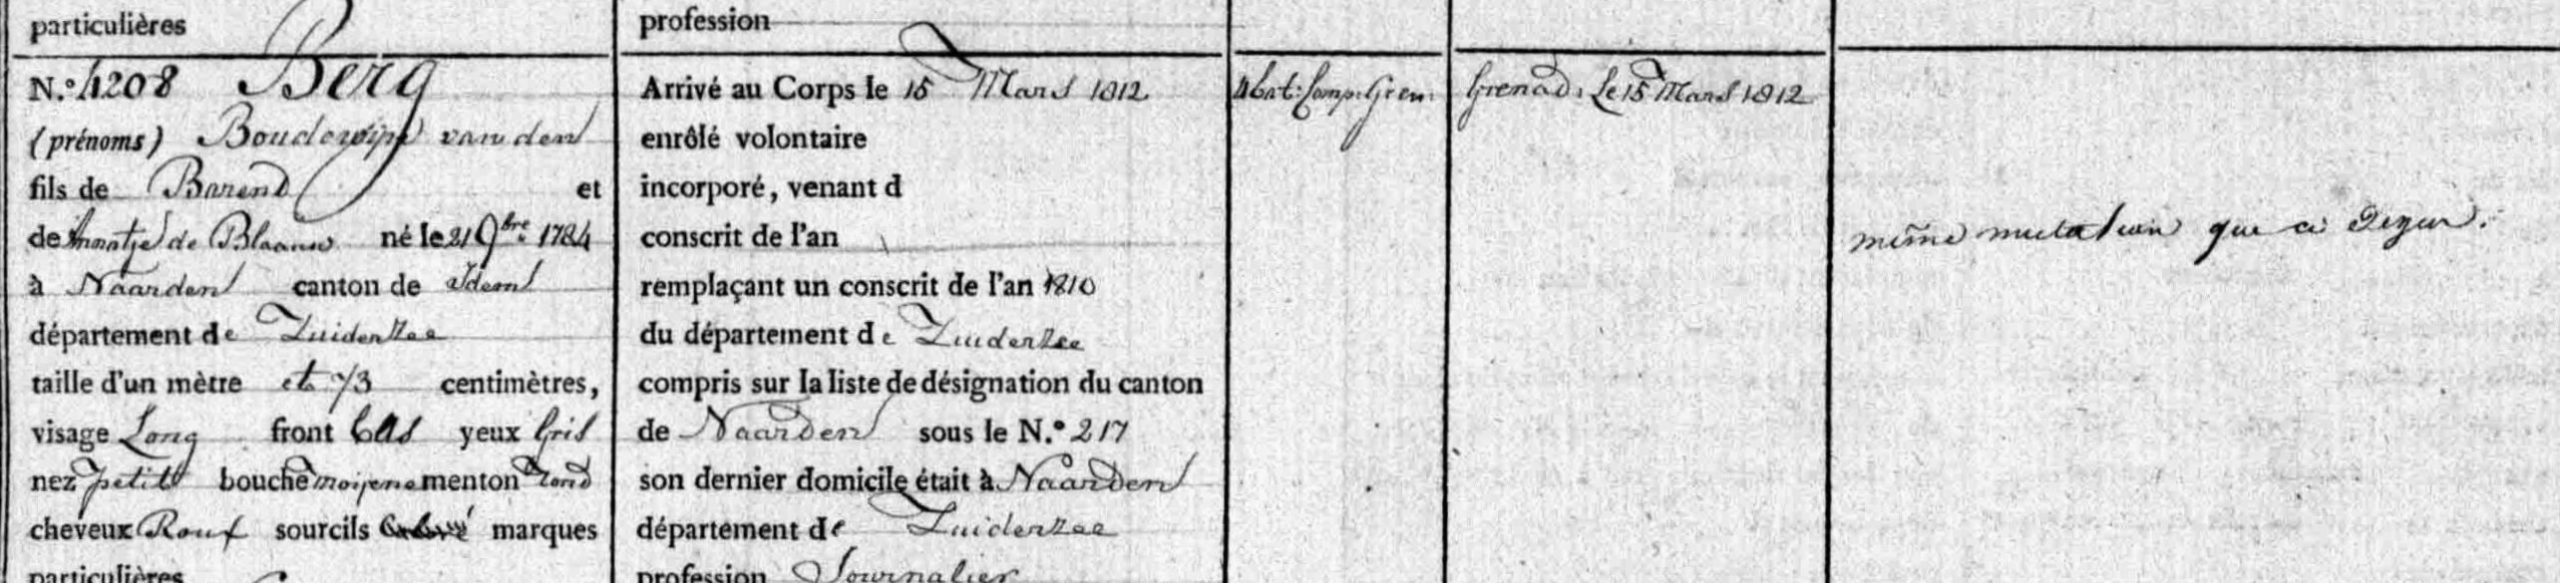 particulières
profession
N.° 4208 Berg
(prénoms) Boudewijn van den
fils de Barend et
de Annatje de Blaauw né le 21 9bre 1784
à Naarden canton de Idem
département de Zuiderzee
taille d'un mètre et 73 centimètres,
visage Long front bas yeux Gris
nez petit bouche moijene menton rond
cheveux Roux sourcils marques
particulières
Arrivé au Corps le 15 Mars 1812
enrôlé volontaire
incorporé, venant d
conscrit de l'an
remplaçant un conscrit de l'an 1810
du département de Zuiderzee
compris sur la liste de désignation du canton
de Naarden sous le N.° 217
son dernier domicile était à Naarden
département de Zuiderzee
profession Journalier
4 bat: Comp: Gren:
Grenad: Le 15 Mars 1812
même mutation que ci